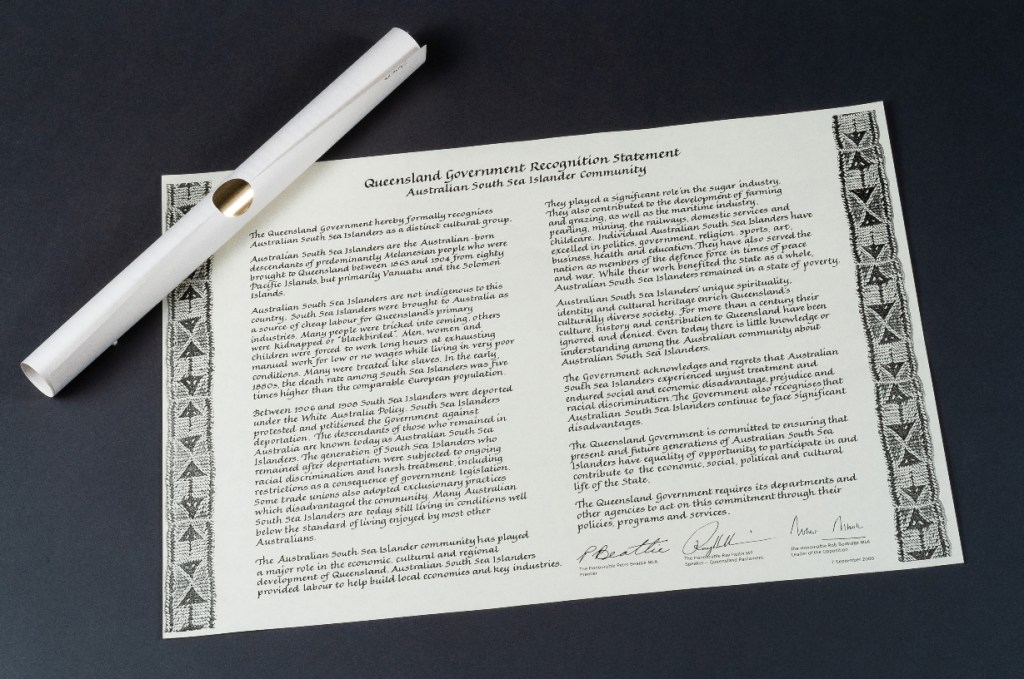 Queensland Government Recognition Statement
Australian South Sea Islander Community
The Queensland Government hereby formally recognises
Australian South Sea Islanders as a distinct cultural group.
Australian South Sea Islanders are the Australian-born
descendants of predominantly Melanesian people who were
brought to Queensland between 1863 and 1904 from eighty
Pacific Islands, but primarily Vanuatu and the Solomon
Islands.
Australian South Sea Islanders are not indigenous to this
country. South Sea Islanders were brought to Australia as
a source of cheap labour for Queensland's primary
industries. Many people were tricked into coming, others
were kidnapped or "blackbirded". Men, women and
children were forced to work long hours at exhausting
manual work for low or no wages while living in very poor
conditions. Many were treated like slaves. In the early
1880s, the death rate among South Sea Islanders was five
times higher than the comparable European population.
Between 1906 and 1908 South Sea Islanders were deported
under the White Australia Policy. South Sea Islanders
protested and petitioned the Government against
deportation. The descendants of those who remained in
Australia are known today as Australian South Sea
Islanders. The generation of South Sea Islanders who
remained after deportation were subjected to ongoing
racial discrimination and harsh treatment, including
restrictions as a consequence of government legislation.
Some trade unions also adopted exclusionary practices
which disadvantaged the community. Many Australian
South Sea Islanders are today still living in conditions well
below the standard of living enjoyed by most other
Australians.
The Australian South Sea Islander community has played
a major role in the economic, cultural and regional
development of Queensland. Australian South Sea Islanders
provided labour to help build local economies and key industries.
They played a significant role in the sugar industry.
They also contributed to the development of farming
and grazing, as well as the maritime industry,
pearling, mining, the railways, domestic services and
childcare. Individual Australian South Sea Islanders have
excelled in politics, government, religion, sports, art,
business, health and education. They have also served the
nation as members of the defence force in times of peace
and war. While their work benefited the State as a whole,
Australian South Sea Islanders remained in a state of poverty.
Australian South Sea Islanders' unique spirituality,
identity and cultural heritage enrich Queensland's
culturally diverse society. For more than a century their
culture, history and contribution to Queensland have been
ignored and denied. Even today there is little knowledge or
understanding among the Australian community about
Australian South Sea Islanders.
The Government acknowledges and regrets that Australian
South Sea Islanders experienced unjust treatment and
endured social and economic disadvantage, prejudice and
racial discrimination. The Government also recognises that
Australian South Sea Islanders continue to face significant
disadvantages.
The Queensland Government is committed to ensuring that
present and future generations of Australian South Sea
Islanders have equality of opportunity to participate in and
contribute to the economic, social, political and cultural
life of the State.
The Queensland Government requires its departments and
other agencies to act on this commitment through their
policies, programs and services.
P Beattie
The Honourable Peter Beattie MLA
Premier
The Honourable Ray Hollis MLA
Speaker - Queensland Parliament
The Honourable Rob Borbidge MLA
Leader of the Opposition
7 September 2000